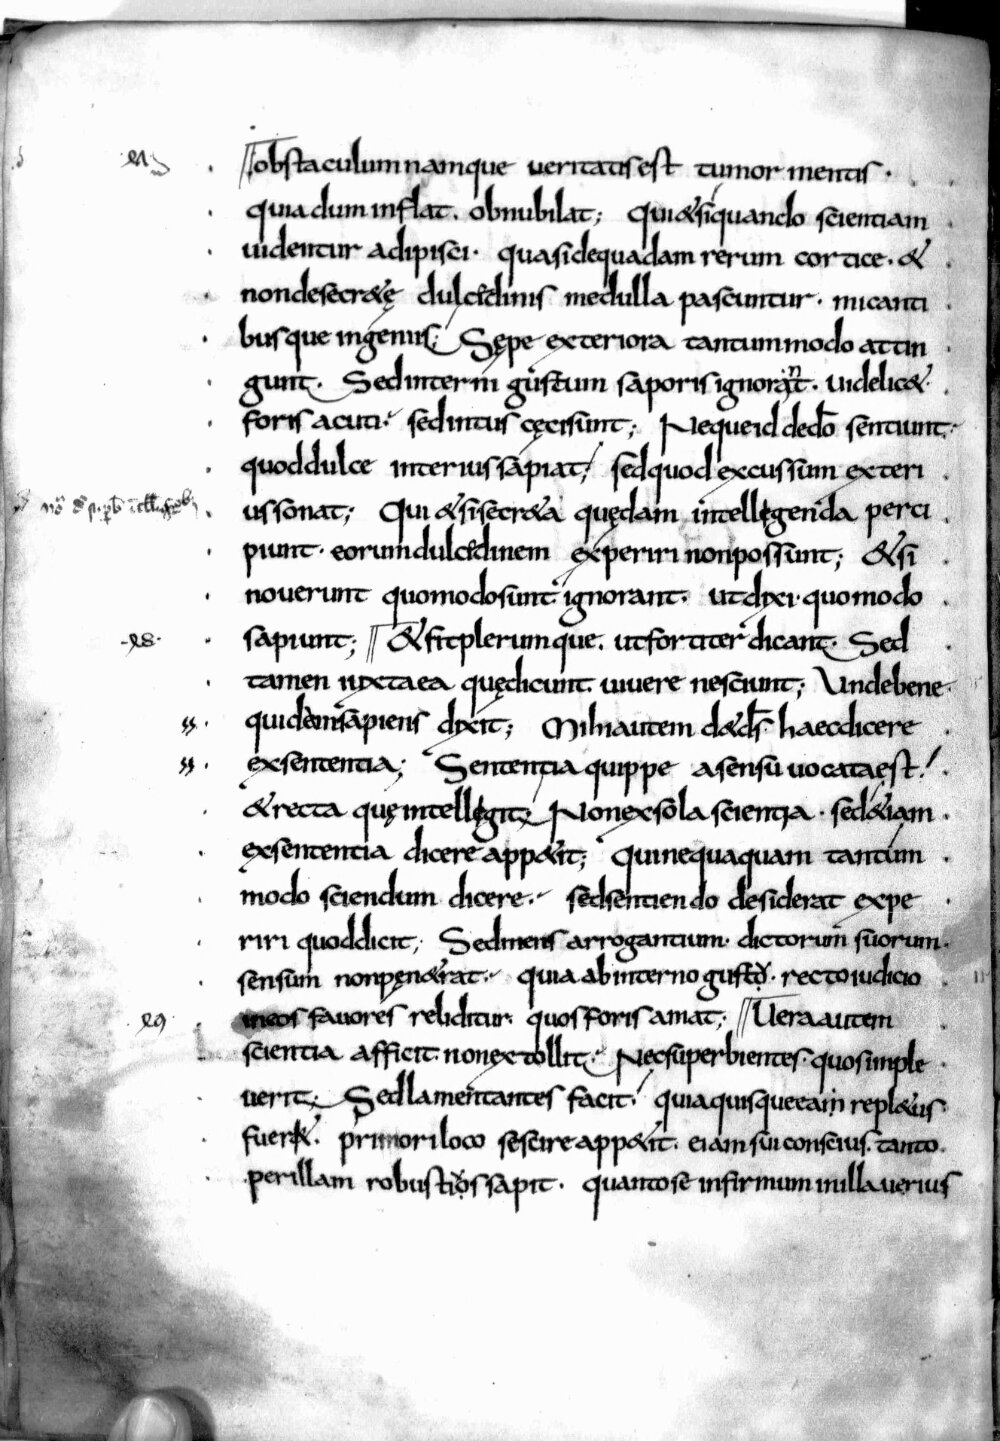 obstaculum namque veritatis est tumor mentis·
quia dum inflat. obnubilat; Qui & si quando scientiam
uidentur adipisci· quasi de quadam rerum cortice· &
non de secr&ę dulcedinis medulla pascuntur· micanti
busque ingeniis; Sępe exteriora tantummodo attin
gunt· Sed interni gustum saporis ignorant· uidelic&·
foris acuti· sed intus cęci sunt; Neque id de dō sentiunt·
quod dulce interius sapiat; sed quod excussum exteri
us sonat; Qui & si secr&a quędam intellegenda perci
piunt· eorum dulcedinem experiri non possunt; & si
noverunt quomodo sunt ignorant· ut dixi· quomodo
sapiunt; & fit plerumque. ut fortiter dicant· Sed
tamen iuxta ea quę dicunt. vivere nesciunt; Unde bene
quidam sapiens dixit; Mihi autem d& ds haec dicere
ex sententia; Sententia quippe a sensu vocata ęst·
& recta quę intellegit; Non ex sola scientia· sed &iam
ex sententia dicere app&it; Qui nequaquam tantum
modo sciendum dicere· sed sentiendo desiderat expe
riri quod dicit; Sed mens arrogantium· dictorum suorum·
sensum non pęn&rat· quia ab interno gusto· recto iudicio
in eos favores reliditur· quos foris amat; Vera autem
scientia afficit non extollit· Nec superbientes· quos imple
verit; Sed lamentantes facit; quia quisque eam repl&us
fuer&· primori loco se scire app&it· eiam sui conscius. tanto·
per illam robustios sapit· quanto se infirmum in illa verius